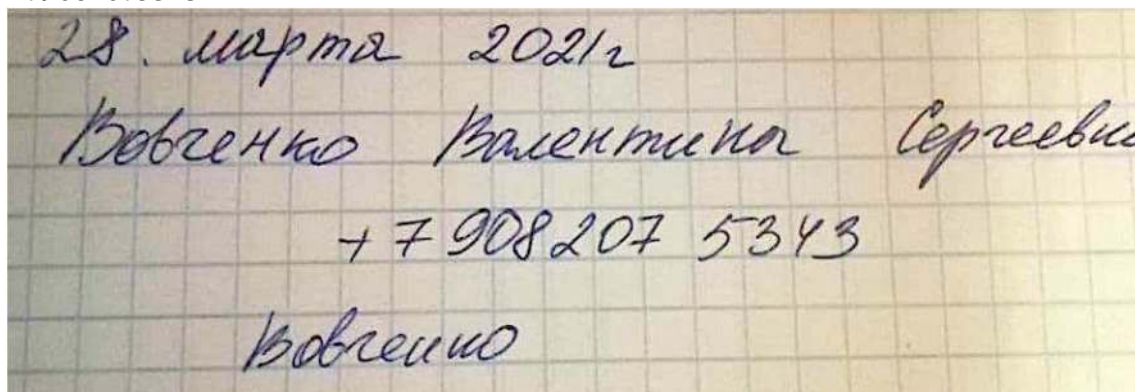 28. марта 2021г
Вовченко Валентина Сергеевна
+7 908 207 5343
Вовченко